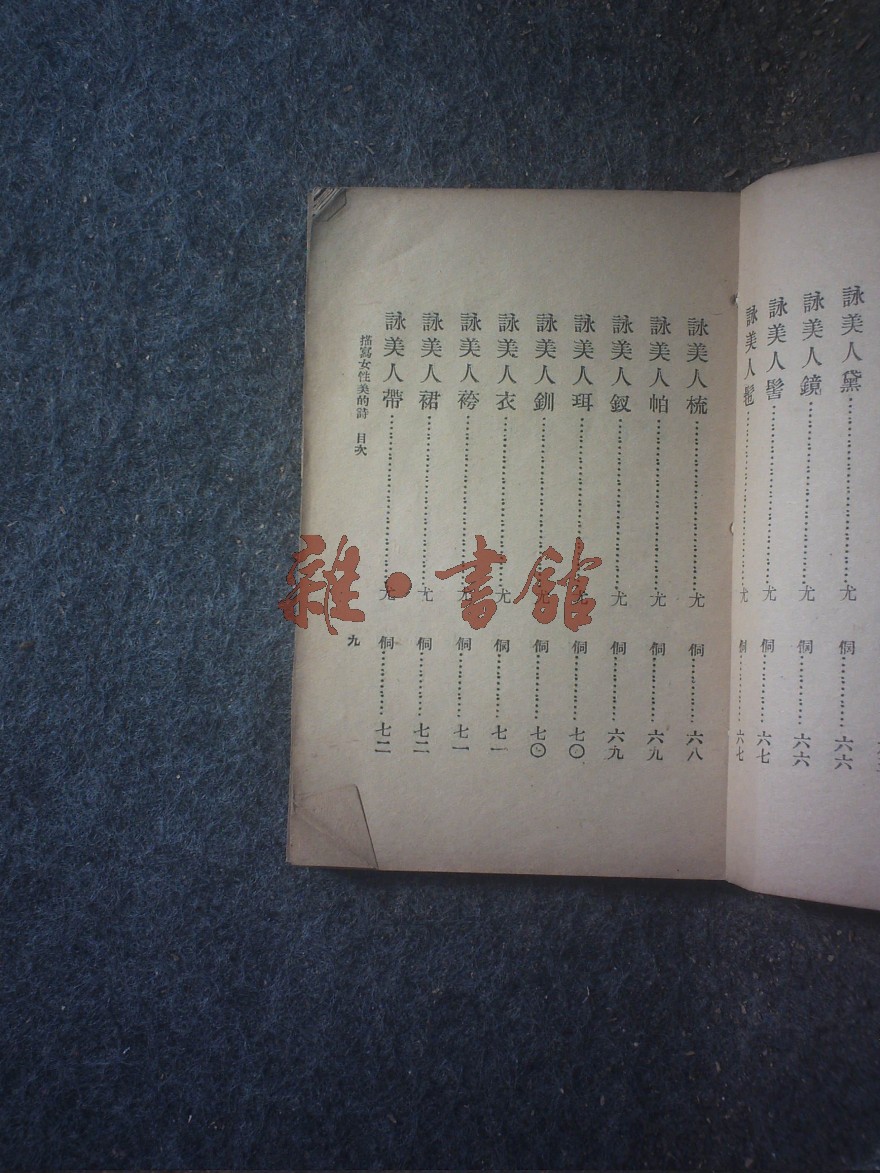 詠美人黛……………尤　侗………六六
詠美人鏡……………尤　侗………六六
詠美人髻……………尤　侗………六七
詠美人……………尤　侗………六七
詠美人梳……………尤　侗………六八
詠美人帕……………尤　侗………六九
詠美人釵……………尤　侗………六九
詠美人珥……………尤　侗………七〇
詠美人釧……………尤　侗………七〇
詠美人衣……………尤　侗………七一
詠美人袴……………尤　侗………七一
詠美人裙……………尤　侗………七二
詠美人帶……………尤　侗………七二
描寫女性美的詩　目次
九
雜·書館